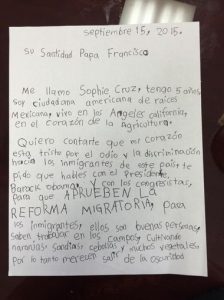 septiembre 15, 2015.
Su Santidad Papa Francisco
Me llamo Sophie Cruz, tengo 5 años,
soy ciudadana americana de raices
Mexicana, vivo en los Angeles california,
en el corazón de la Agricultura.
Quiero contarte que mi corazón
esta triste por el odio y la discriminación
hacia los inmigrantes de este pais, te
pido que hables con el Presidente,
Barack obama, y con los congresistas,
para que APRUEBEN LA
REFORMA MIGRATORIA, para
los inmigrantes; ellos son buenas personas,
saben trabajar en los campos, cultivando
naranjas, sandías, cebollas, y muchos vegetales,
por lo tanto merecen salir de la oscuridad